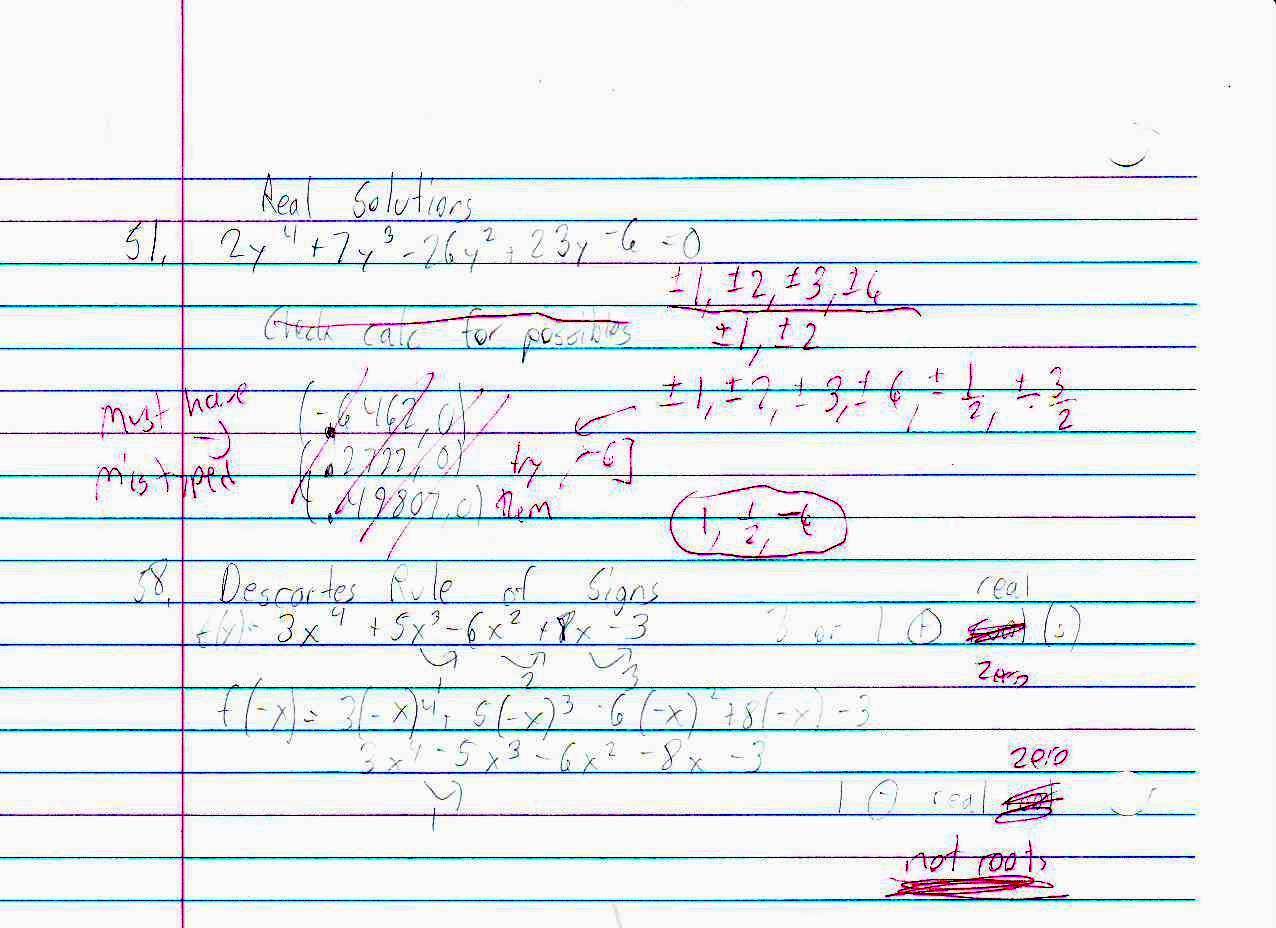 Real Solutions
51. 2y⁴ + 7y³ - 26y² + 23y - 6 = 0
±1, ±2, ±3, ±6
±1, ±2
Check calc for possibles
±1, ±2, ±3, ±6, ±1/2, ±3/2
Must have mistyped
(-.6462, 0)
(.2722, 0) try -6]
(.49807, 0) them
1, 1/2, -6
58. Descartes Rule of Signs
f(x) = 3x⁴ + 5x³ - 6x² + 8x - 3 3 or 1 (+) real zero (s)
1 2 3
f(-x) = 3(-x)⁴ + 5(-x)³ - 6(-x)² + 8(-x) - 3
3x⁴ - 5x³ - 6x² - 8x - 3
1
1 (-) real zero
not roots